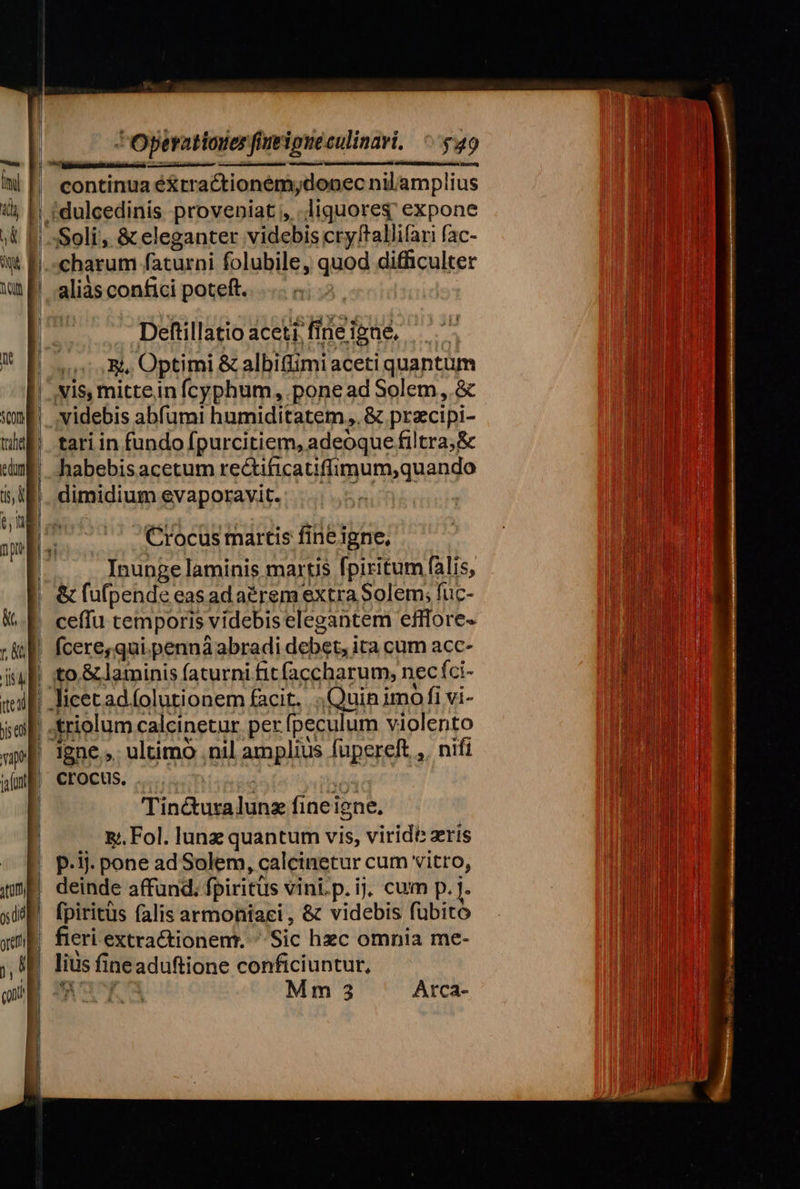 Operationes sine igne culinari. 549
continua extractionem, donec nil amplius
dulcedinis proveniat, liquores expone
Soli, & eleganter videbis cryſtalliſari ſac-
charum ſaturni ſolubile, quod difficulter
aliàs confici poteſt.
Deſtillatio aceti ſine igne.
℞. Optimi & albiſſimi aceti quantum
vis, mitte in ſcyphum, pone ad Solem, &
videbis abſumi humiditatem, & præcipi-
tari in fundo ſpurcitiem, adeoque filtra, &
habebis acetum rectificatiſſimum, quando
dimidium evaporavit.
Crocus martis ſine igne.
Inunge laminis martis ſpiritum ſalis,
& ſuſpende eas ad aërem extra Solem; ſuc-
ceſſu temporis videbis elegantem efflore-
ſcere, qui pennâ abradi debet, ita cum ace-
to & laminis ſaturni fit ſaccharum, nec ſci-
licet ad ſolutionem facit. Quin imo ſi vi-
triolum calcinetur per ſpeculum violento
igne, ultimò nil amplius ſupereſt, niſi
crocus.
Tinctura lunæ ſine igne.
℞. Fol. lunæ quantum vis, viridis æris
p. ij. pone ad Solem, calcinetur cum vitro,
deinde affund. ſpiritûs vini p. ij. cum p. j.
ſpiritûs ſalis armoniaci, & videbis ſubitò
fieri extractionem. Sic hæc omnia me-
liùs ſine aduſtione conficiuntur.
Mm 3 Arca-